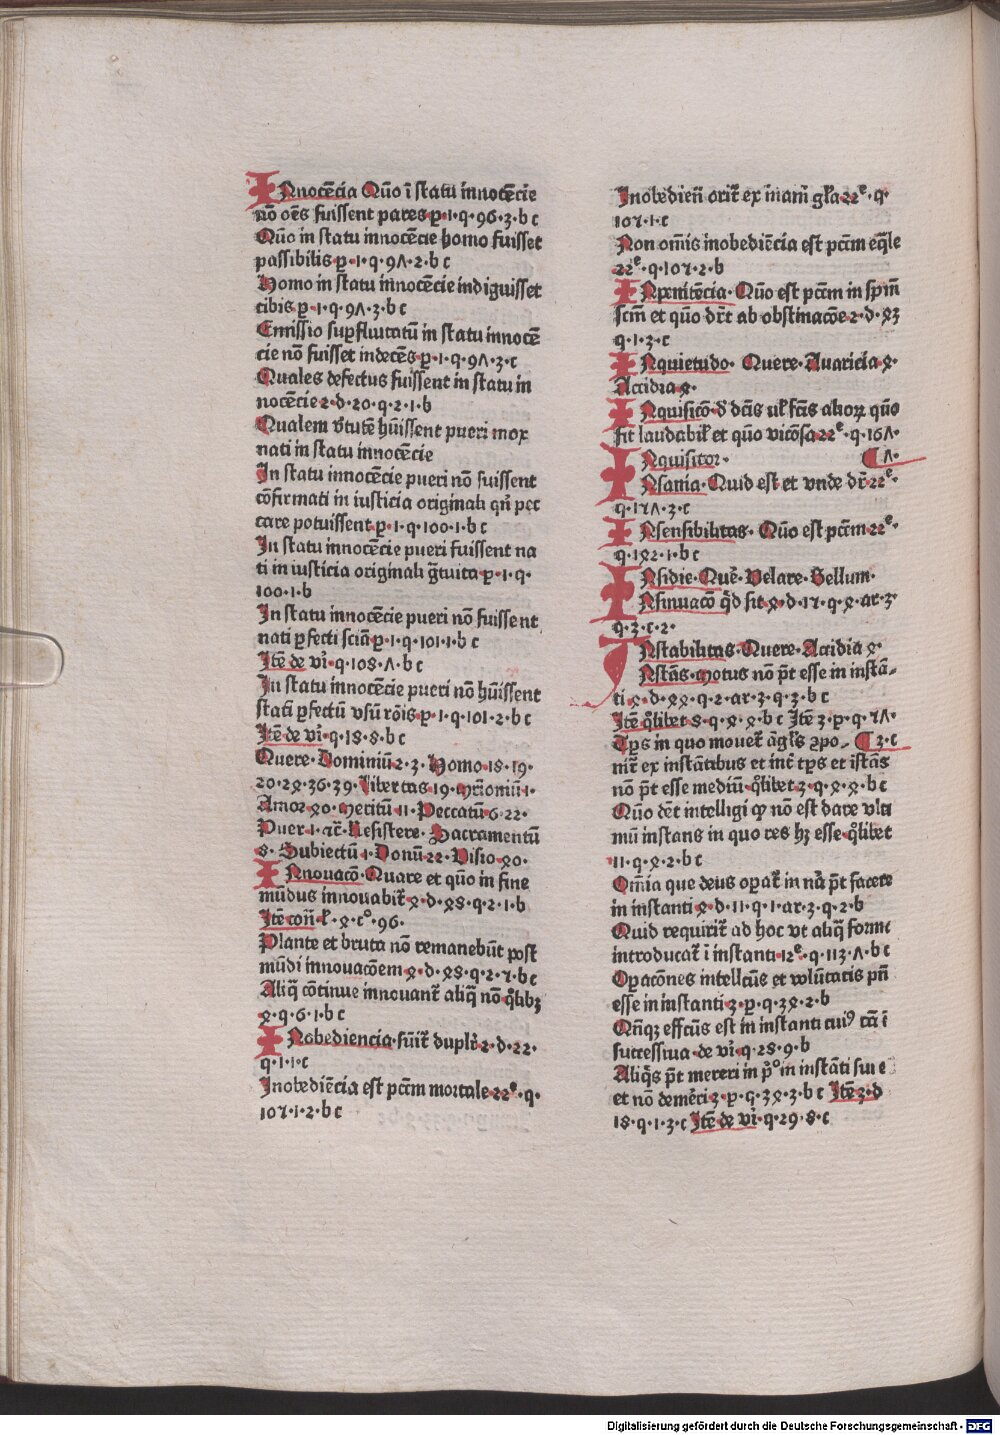 INnocẽcia Quõ ĩ statu innocẽcie
nõ oẽs fuissent pares p̱·1·q·96·3·b c
Quõ in statu innocẽcie homo fuisset
passibilis p̱·1·q·9Λ·2·b c
Homo in statu innocẽcie indiguisset
cibis p̱·1·q·9Λ·3·b c
Emissio suꝑfluitatũ in statu innocẽ
cie nõ fuisset indecẽs p̱·1·q·9Λ·3·c
Quales defectus fuissent in statu in
nocẽcie 2·d·20·q·2·1·b
Qualem v̾tutẽ hũissent pueri mox
nati in statu innocẽcie
In statu innocẽcie pueri nõ fuissent
cõfirmati in iusticia originali qñ pec
care potuissent p̱·1·q·100·1·b c
In statu innocẽcie pueri fuissent na
ti in iusticia originali g̃tuita p̱·1·q·
100·1·b
In statu innocẽcie pueri nõ fuissent
nati ꝑfecti sciã p̱·1·q·101·1·b c
Itẽ de vĩ·q·18·Λ·b c
In statu innocẽcie pueri nõ hũissent
statĩ ꝑfectũ vsũ rõis p̱·1·q·101·2·b c
Itẽ de vĩ·q·18·8·b c
Quere·Dominiũ 2·3·Homo 18·19·
20·2ꝝ·36·39·Libertas 19·Mr̃imoniũ 1·
Amor ꝝ0·Meritũ 11·Peccatũ 6·22·
Puer 1·ꝛc̃·Resistere·Sacramentũ
8·Subiectũ 1·Donũ 22·Visio ꝝ0·
INnouacõ·Quare et quõ in fine
mũdus innouabiť ꝝ·d·ꝝ8·q·2·1·b
Itẽ coñ ł·ꝝ·c°·96·
Plante et bruta nõ remanebũt post
mũdi innouacõem ꝝ·d·ꝝ8·q·2·7·b c
Aliq̃ cõtinue innouanť aliq̃ nõ q̊libꝫ
ꝝ·q·6·1·b c
INobediencia·sũiť duplr̃ 2·d·22·
q·1·1·c
Inobediẽcia est pctm̃ mortale 22ᵉ·q·
107·1·2·b c
Inobedieñ oriť ex inani gl̃a 22ᵉ·q·
107·1·c
Non om̃is inobediẽcia est pctm̃ eq̃le
22ᵉ·q·107·2·b
INpenitẽcia·Quõ est pctm̃ in spm̃
sctm̃ et quõ dr̃t ab obstinacõe 2·d·ꝝ3
q·1·3·c
INquietudo·Quere·Auaricia ꝝ·
Accidia ꝝ·
INquisicõ d̾ dc̃is vł fc̃is alioꝝ quõ
fit laudabił et quõ vicõsa 22ᵉ·q·16Λ·
INquisitor· ¶ Λ·
INsania·Quid est et vnde dr̃ 22ᵉ·
q·1ꝛΛ·3·c
INsensibilitas·Quõ est pctm̃ 22ᵉ·
q·1ꝝ2·1·b c
INsidie·Quẽ·Velare·Bellum·
INsinuacõ q̃d sit ꝝ·d·17·q·ꝝ·ar·3·
q·3·c·2·
INstabilitas·Quere·Accidia ꝝ·
INstãs·Motus nõ p̃t esse in instã-
ti ꝝ·d·ꝝꝝ·q·2·ar·3·q·3·b c
Itẽ q̊libet 8·q·ꝝ·ꝝ·b c Itẽ 3·p̱·q·7Λ·
Tp̃s in quo moueť ãgl̃s ꝯpo- ¶ 3·c
niť ex instãtibus et int̾ tp̃s et istãs
nõ p̃t esse mediũ·q̊libet 3·q·ꝝ·ꝝ·b c
Quõ dẽt intelligi ꝙ nõ est dare vlti
mũ instans in quo res hꝫ esse·q̊libet
11·q·ꝝ·2·b c
Om̃ia que deus oꝑať in nã p̃t facere
in instanti ꝝ·d·11·q·1·ar·3·q·2·b
Quid requiriť ad hoc vt aliq̃ forma
introducať ĩ instanti·12ᵉ·q·113·Λ·b c
Oꝑacões intellc̃us et volũtatis pñt
esse in instanti 3·p̱·q·3ꝝ·2·b
Qñqꝫ effc̃us est in instanti cui⁹ cã ẽ
successiua·de vĩ·q·28·9·b
Aliq̃s p̃t mereri in p̊ in instãti sui e
et nõ demẽri 3·p̱·q·3ꝝ·3·b c Itẽ 3·d
18·q·1·3·c Itẽ de vĩ·q·29·8·c
Digitalisierung gefördert durch die Deutsche Forschungsgemeinschaft - DFG